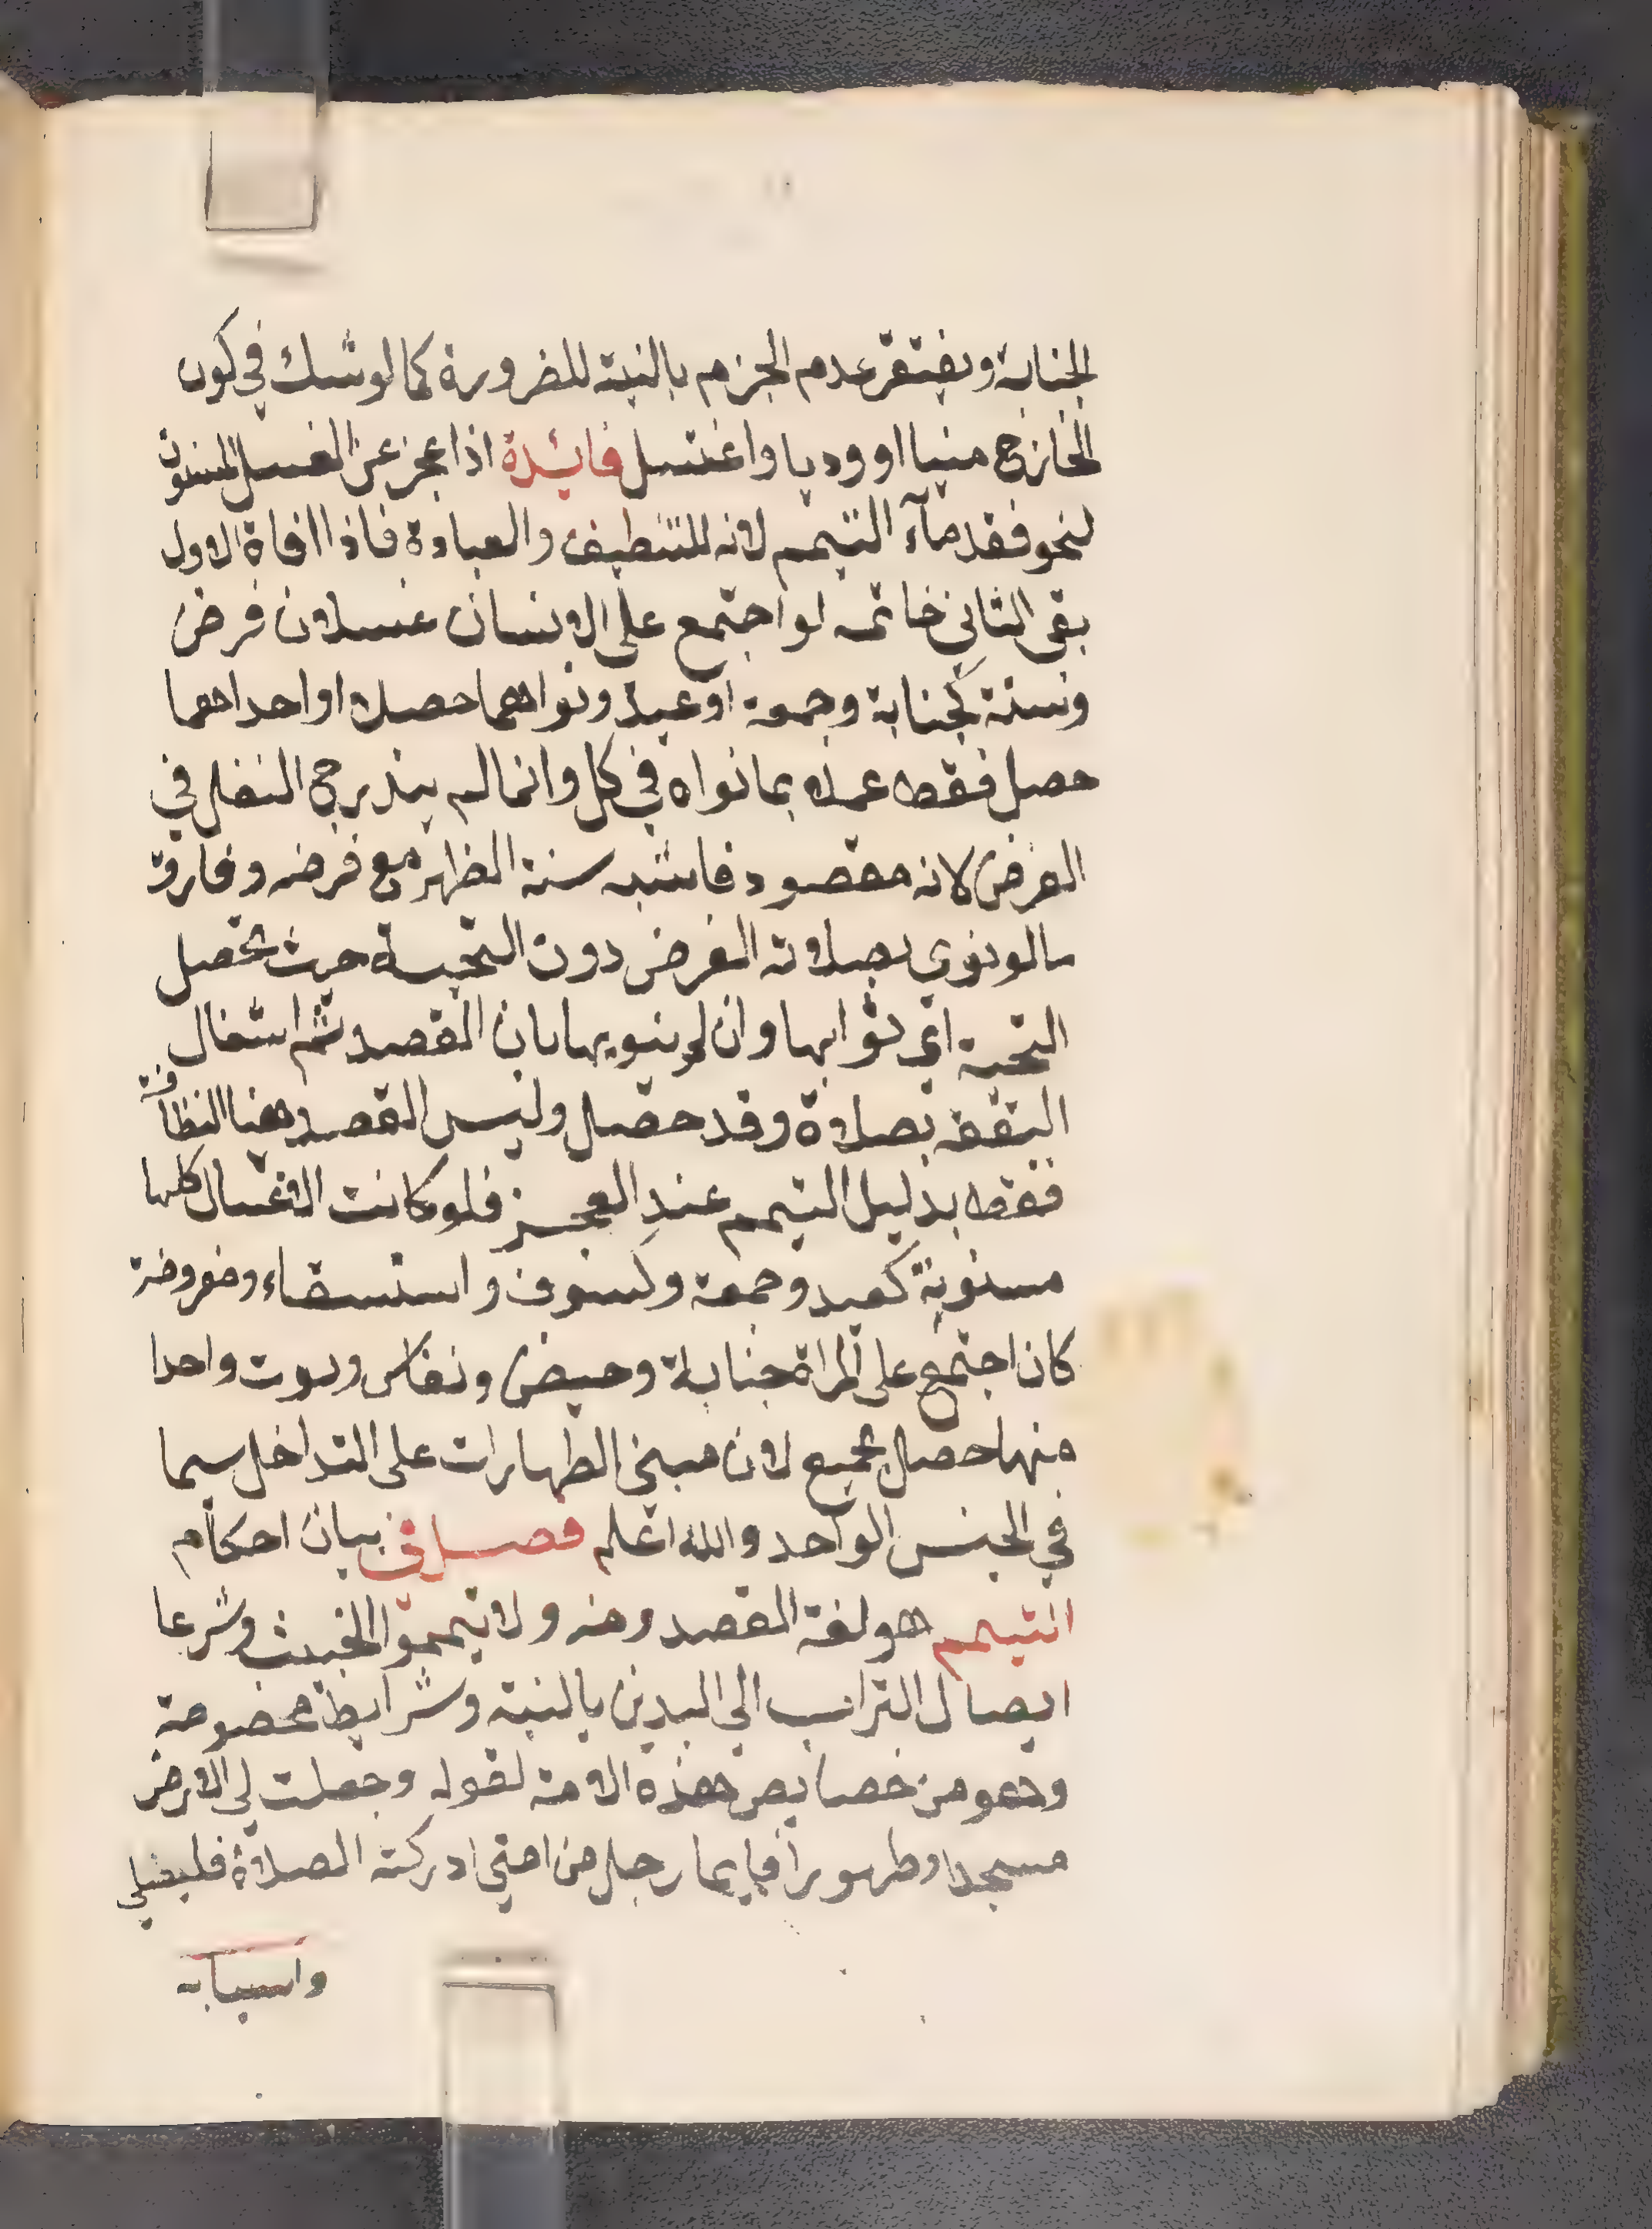 الجنابة ويغتفر عدم الجزم بالنية للضرورة كما لو شك في كون
الخارج منيا او وديا واغتسل فائدة اذا عجز عن الغسل المسنون
لنحو فقد مآء التيمم لانه للتنظيف والعبادة فاذا افاة الاول
بقى الثاني خاتمه لو اجتمع على الانسان غسلان فرض
وسنة كجنابة وجمعة او عيد ونواهما حصلا او احداهما
حصل فقط عملا بما نواه في كل وانما لم يندرج النفل في
الفرض لانه مقصود فاشبه سنة الظهر مع فرضه وفارق
مالو نوي بصلاته الفرض دون التحية حيث تحصل
التحية اي ثوابها وان لم ينويها بان القصد ثم اشغال
البقعة بصلاة وقد حصل وليس القصد هنا النظافة
فقط بدليل التيمم عند العجز فلو كانت الاغسال كلها
مسنونة كعيد وجمعة وكسوف واستسقاء ومفروضة
كان اجتمع على المراة جنابة وحيض ونفاس ونوت واحدا
منها حصل الجميع لان مبنى الطهارات على التداخل سيما
في الجنس الواحد والله اعلم فصل في بيان احكام
التيمم هو لغة القصد ومنه ولا تيمموا الخبيث وشرعا
ايصال التراب الى اليدين بالنية وشرايط مخصوصة
وهو من خصايص هذه الامة لقوله وجعلت لي الارض
مسجدا وطهورا فايما رجل من امتي ادركته الصلاة فليصلي
واسبابه